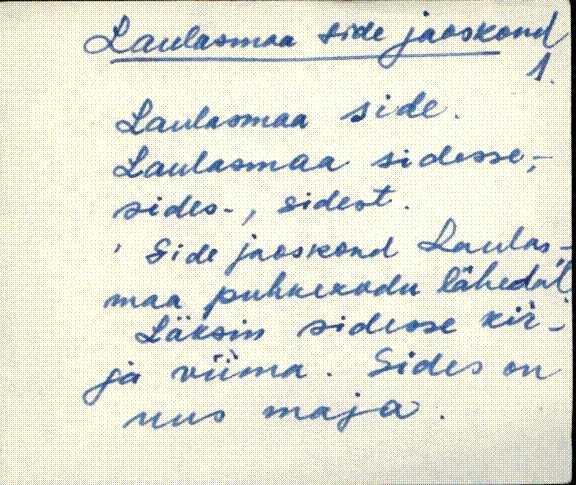 Laulasmaa side jaoskond
1.
Laulasmaa side.
Laulasmaa sidesse,-
sides-, sidest.
' Side jaoskond Laulas-
maa puhkekodu lähedal
Läksin sidesse kir-
ja viima. Sides on
uus maja.